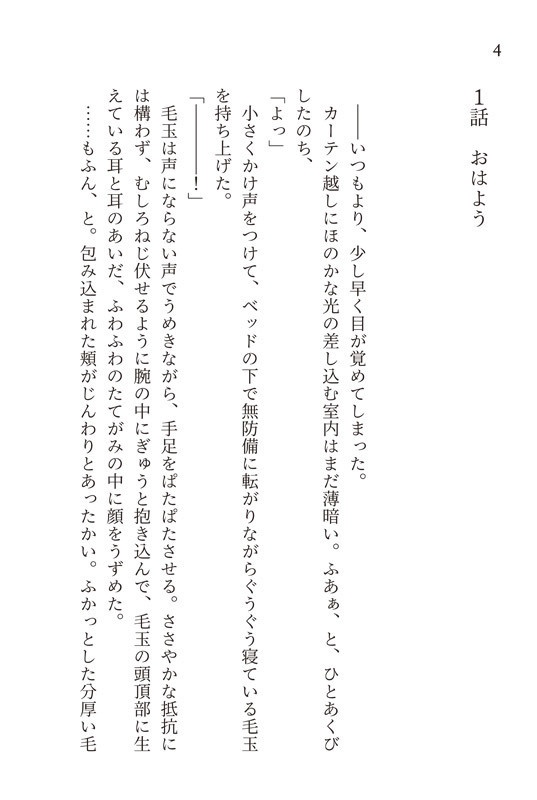 4
1話　おはよう
――いつもより、少し早く目が覚めてしまった。
カーテン越しにほのかな光の差し込む室内はまだ薄暗い。ふあぁ、と、ひとあくび
したのち、
「よっ」
小さくかけ声をつけて、ベッドの下で無防備に転がりながらぐうぐう寝ている毛玉
を持ち上げた。
「――――！」
毛玉は声にならない声でうめきながら、手足をぱたぱたさせる。ささやかな抵抗に
は構わず、むしろねじ伏せるように腕の中にぎゅうと抱き込んで、毛玉の頭頂部に生
えている耳と耳のあいだ、ふわふわのたてがみの中に顔をうずめた。
……もふん、と。包み込まれた頬がじんわりとあったかい。ふかっとした分厚い毛